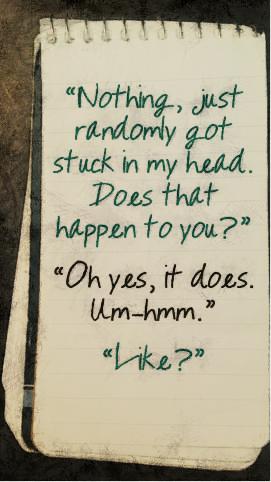 “Nothing, just
randomly got
stuck in my head.
Does that
happen to you?”
“Oh yes, it does.
Um-hmm.”
“Like?”